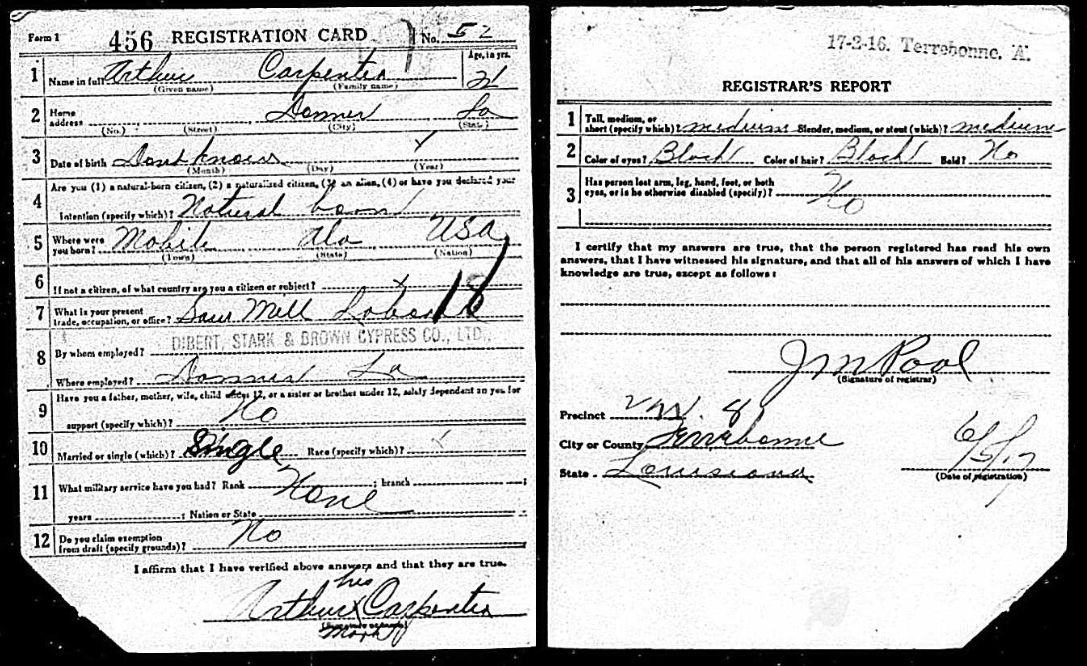 Form 1 456 REGISTRATION CARD No. 52
1 Name in full Arthur Carpenter Age, in yrs. 21
(Given name) (Family name)
2 Home address Donner La
(No.) (Street) (City) (State)
3 Date of birth Dont know x
(Month) (Day) (Year)
4 Are you (1) a natural-born citizen, (2) a naturalized citizen, (3) an alien, (4) or have you declared your
intention (specify which)? Natural born
5 Where were you born? Mobile Ala USA
(Town) (State) (Nation)
6 If not a citizen, of what country are you a citizen or subject? x
7 What is your present trade, occupation, or office? Saw Mill Laborer 18
8 By whom employed? DIBERT, STARK & BROWN CYPRESS CO., LTD.,
Where employed? Donner La
9 Have you a father, mother, wife, child under 12, or a sister or brother under 12, solely dependent on you for
support (specify which)? No
10 Married or single (which)? Single Race (specify which)?
11 What military service have you had? Rank None ; branch ;
years ; Nation or State
12 Do you claim exemption from draft (specify grounds)? No
I affirm that I have verified above answers and that they are true.
his
Arthur x Carpenter
mark
17-2-16. Terrebonne. 'A'.
REGISTRAR'S REPORT
1 Tall, medium, or short (specify which)? medium Slender, medium, or stout (which)? medium
2 Color of eyes? Black Color of hair? Black Bald? No
3 Has person lost arm, leg, hand, foot, or both eyes, or is he otherwise disabled (specify)? No
I certify that my answers are true, that the person registered has read his own
answers, that I have witnessed his signature, and that all of his answers of which I have
knowledge are true, except as follows:
J M Pool
(Signature of registrar)
Precinct 8
City or County Terrebonne
State Louisiana
6/5/17
(Date of registration)